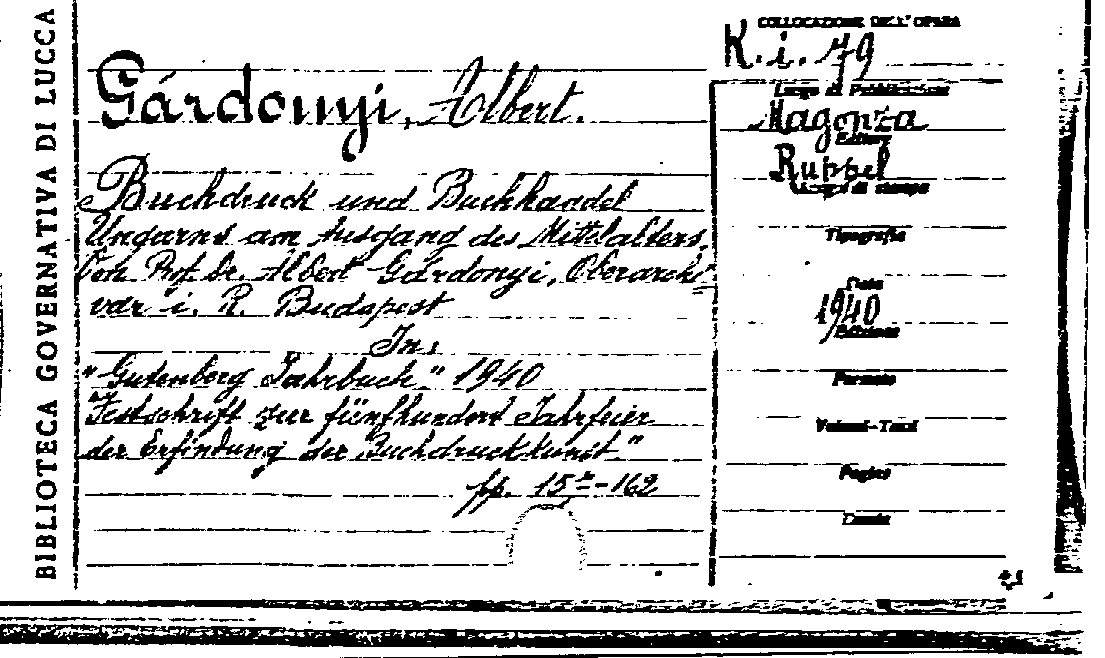 BIBLIOTECA GOVERNATIVA DI LUCCA
Gárdonyi, Albert.
Buchdruck und Buchhandel
Ungarns am Ausgang des Mittelalters.
Von Prof. Dr. Albert Gárdonyi, Oberarchi=
var i. R. Budapest
In:
"Gutenberg Jahrbuch" 1940
"Festschrift zur fünfhundert Jahrfeier
der Erfindung der Buchdruckkunst"
pp. -162
COLLOCAZIONE DELL'OPERA
K. i. 79
Luogo di Pubblicazione
Magonza
Editore
Ruppel
Luogo di stampa
Tipografia
Data
1940
Edizione
Formato
Volumi-Tomi
Pagine